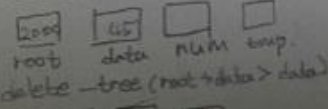 2000 45
root data num temp.
delete_tree(root→data> data)